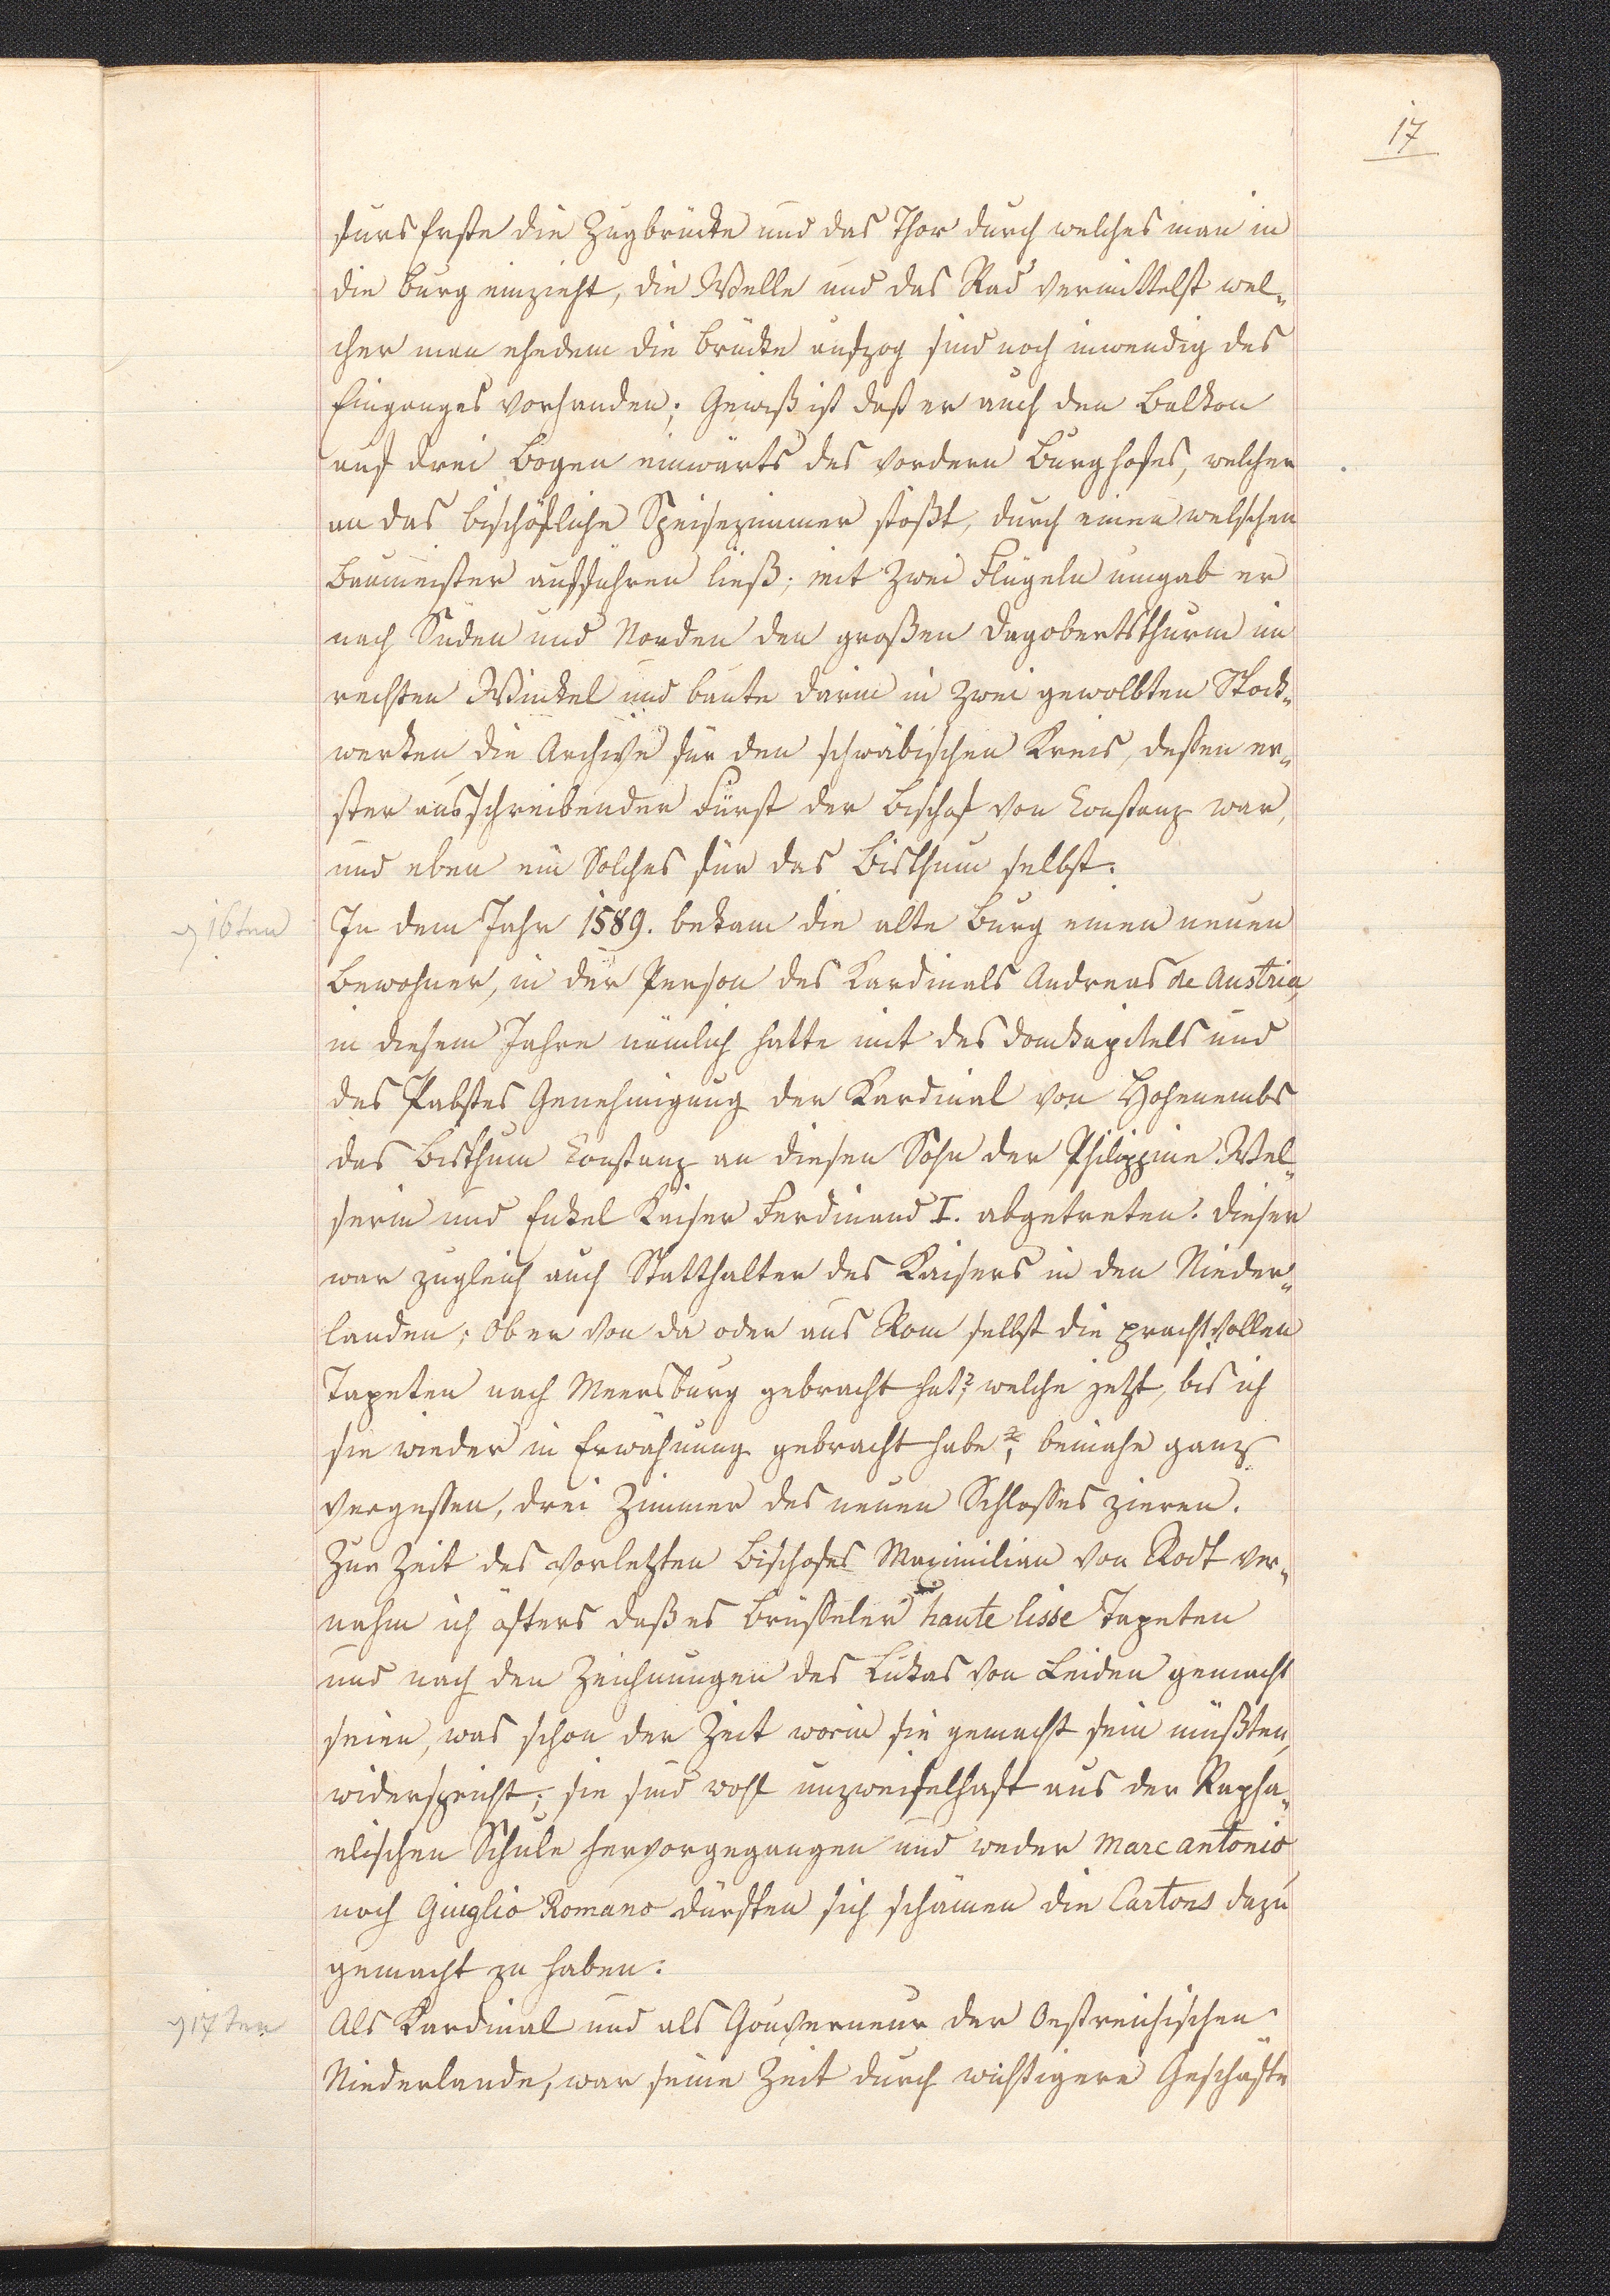 17
furs Erste die Zugbrücke und das Thor durch welches man in
die Burg einzieht, die Welle und das Rad vermittelst wel„
cher man ehedem die Brücke aufzog sind noch inwendig des
Einganges vorhanden; Gewiß ist daß er auch den Balkon
auf drei Bogen einwärts des vordern Burghofes, welcher
an das bischöfliche Speisezimmer stößt, durch einen welschen
Baumeister aufführen ließ; mit zwei Flügeln umgab er
nach Süden und Norden den großen Dagobertsthurm im
rechten Winkel und baute darin in zwei gewolbten Stock„
werken die Archive für den schwäbischen Kreis, deßen er„
ster ausschreibender Fürst der Bischof von Constanz war,
und eben ein Solches für das Bisthum selbst.
16ten
In dem Jahr 1589. bekam die alte Burg einen neuen
Bewohner, in der Person des Kardinals Andreas de Austria,
in diesem Jahre nämlich hatte mit des Domkapitels und
des Pabstes Genehmigung der Kardinal von Hohenembs
das Bisthum Constanz an diesen Sohn der Philippine Wel„
serin und Enkel Kaiser Ferdinand I. abgetreten. Dieser
war zugleich auch Statthalter des Kaisers in den Nieder„
landen; Ob er von da oder aus Rom selbst die prachtvollen
Tapeten nach Meersburg gebracht hat?, welche jetzt, bis ich
sie wieder in Erwähnung gebracht habe, beinahe ganz
vergessen, drei Zimmer des neuen Schlosses zieren.
Zur Zeit des vorletzten Bischofes Maximilian von Rodt ver„
nahm ich öfters daß es Brüsseler haute lisse Tapeten
und nach den Zeichnungen des Lukas von Leiden gemacht
seien, was schon der Zeit worin sie gemacht sein müßten,
widerspricht; sie sind wohl unzweifelhaft aus der Rapha„
elischen Schule hervorgegangen und weder Marc antonio
noch Giuglio Romano dürften sich schämen die Cartons dazu
gemacht zu haben.
17ten
Als Kardinal und als Gouverneur der Oestreichischen
Niederlande, war seine Zeit durch wichtigere Geschäfte